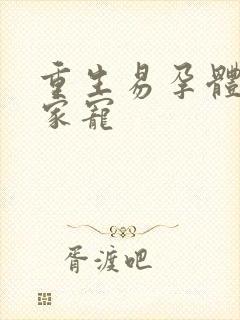 重生易孕體
家寵
胥渡吧